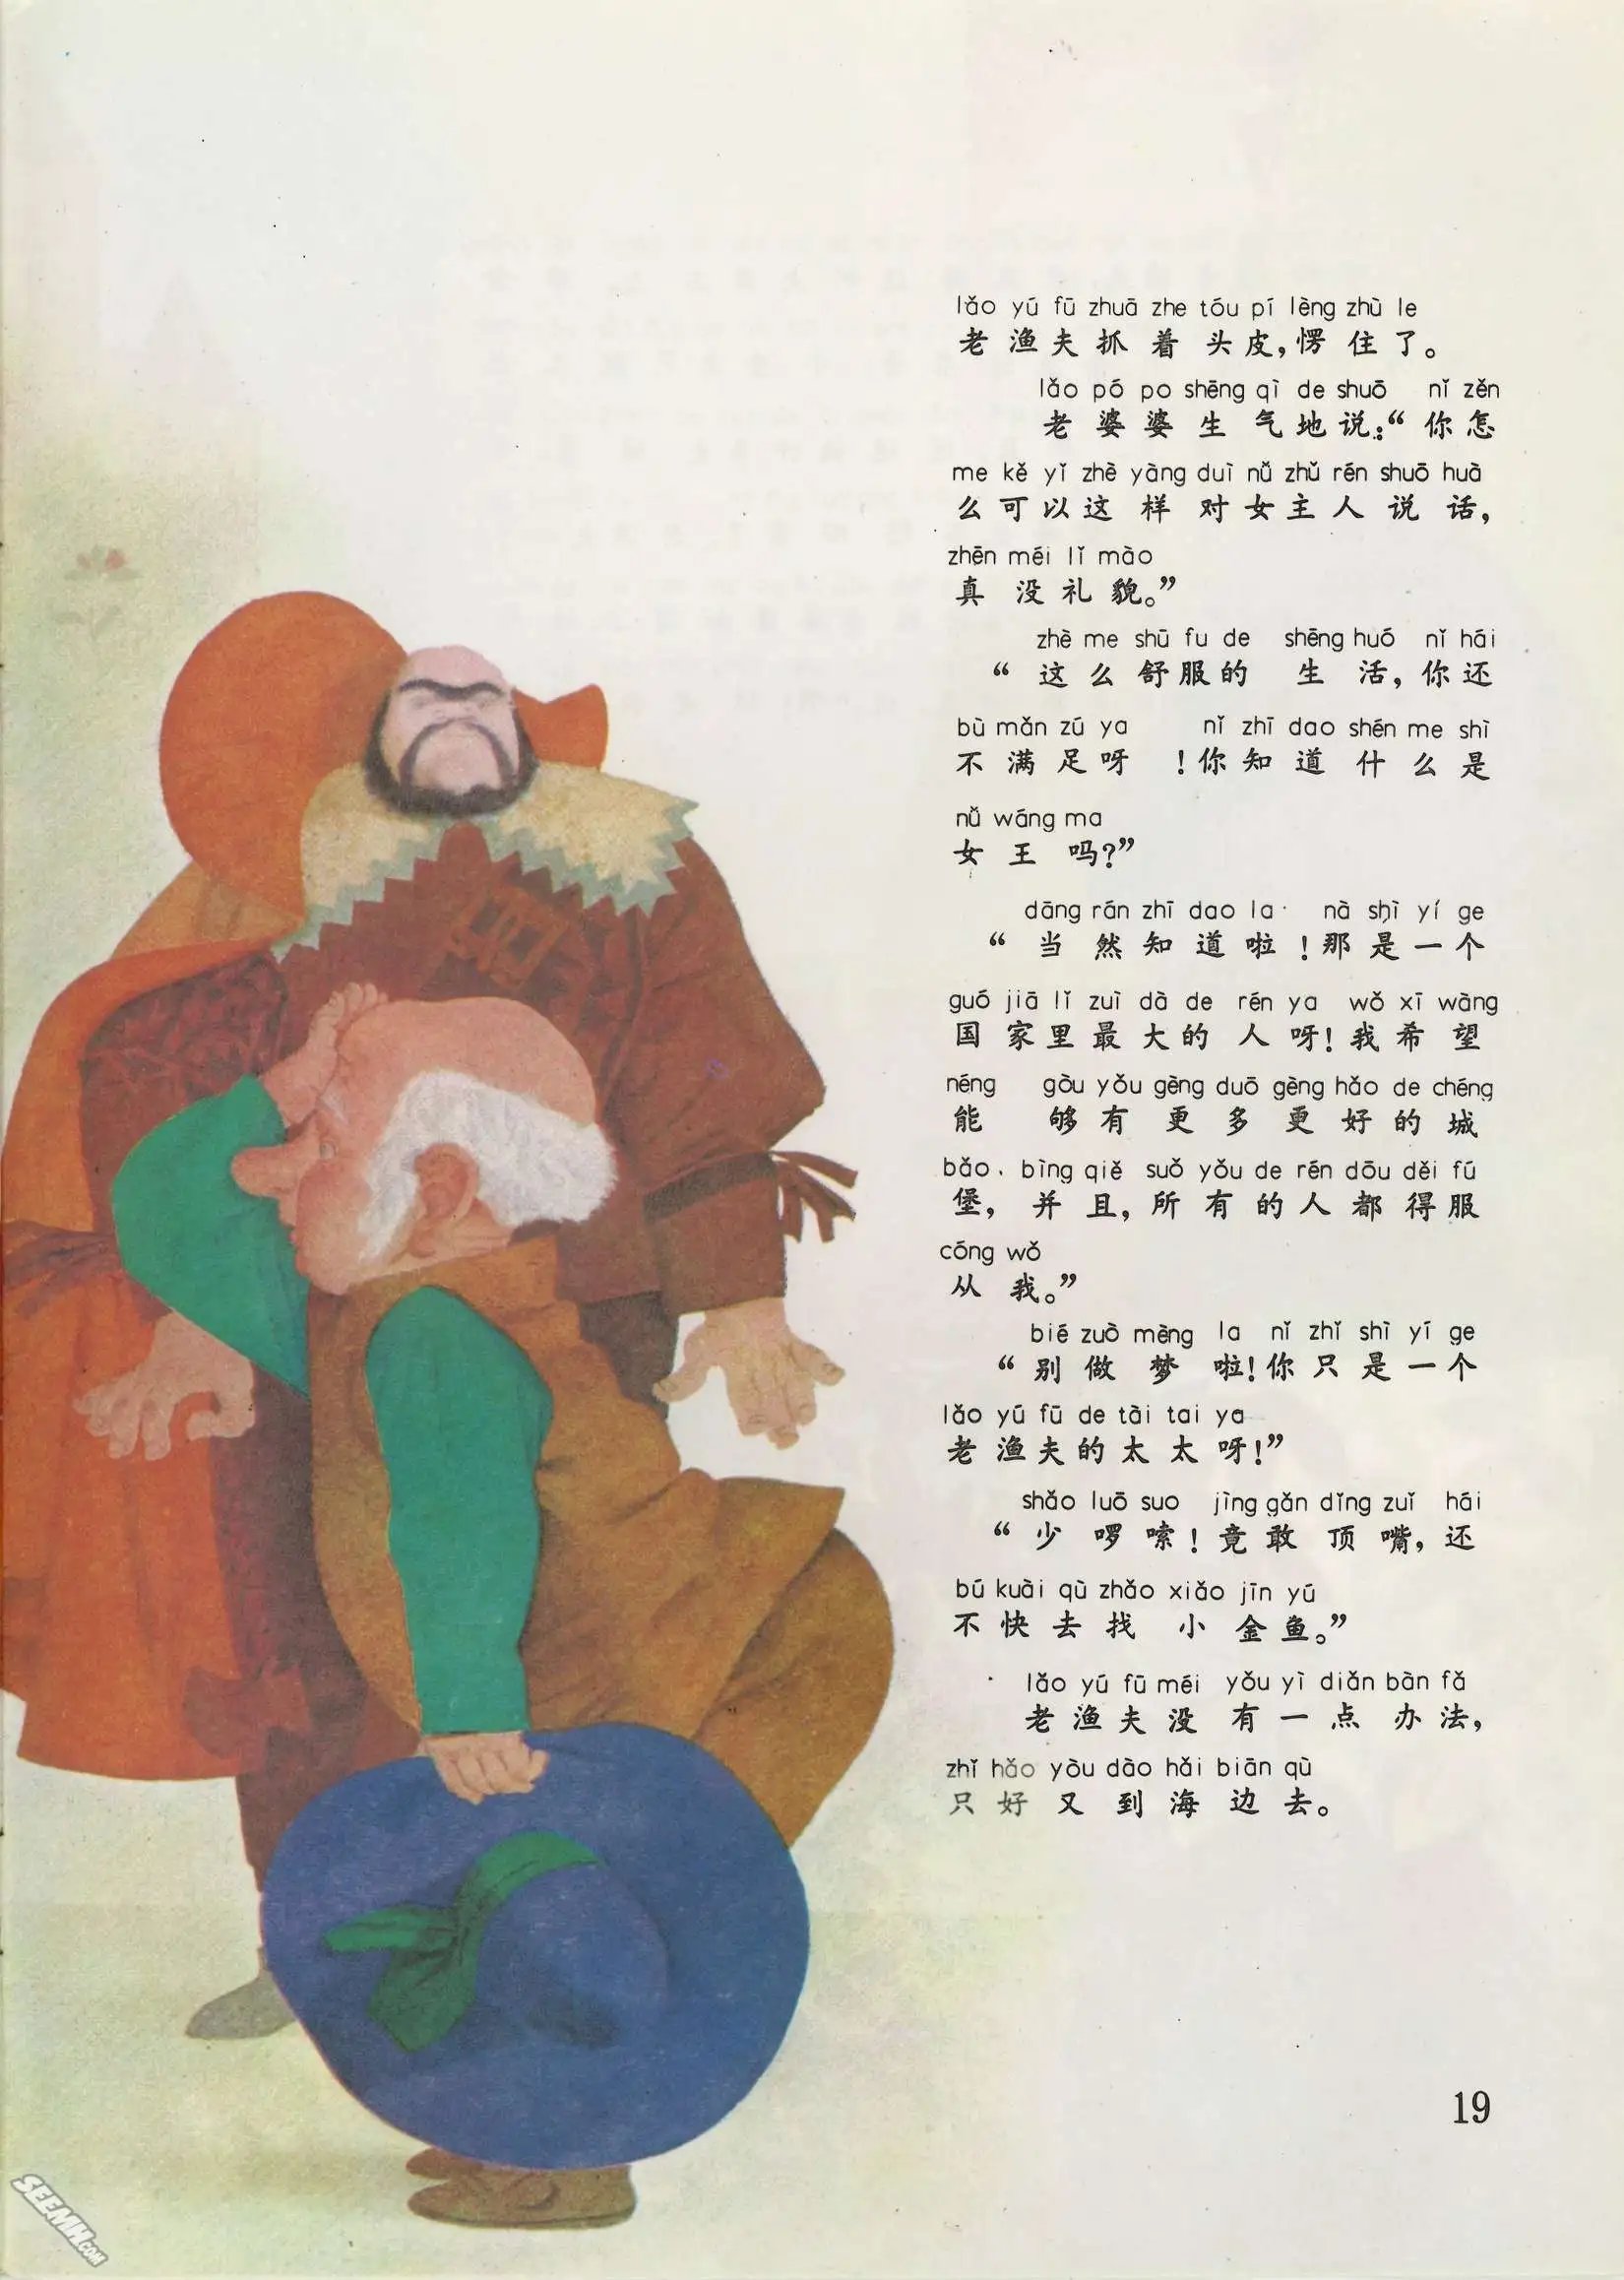 lǎo yú fū zhuā zhe tóu pí lèng zhù le
老渔夫抓着头皮，愣住了。
lǎo pó po shēng qì de shuō nǐ zěn
老婆婆生气地说：“你怎
me kě yǐ zhè yàng duì nǚ zhǔ rén shuō huà
么可以这样对女主人说话，
zhēn méi lǐ mào
真没礼貌。”
zhè me shū fu de shēng huó nǐ hái
“这么舒服的生活，你还
bù mǎn zú ya nǐ zhī dao shén me shì
不满足呀！你知道什么是
nǚ wáng ma
女王吗？”
dāng rán zhī dao la nà shì yí ge
“当然知道啦！那是一个
guó jiā lǐ zuì dà de rén ya wǒ xī wàng
国家里最大的人呀！我希望
néng gòu yǒu gèng duō gèng hǎo de chéng
能够有更多更好的城
bǎo bìng qiě suǒ yǒu de rén dōu děi fú
堡，并且，所有的人都得服
cóng wǒ
从我。”
bié zuò mèng la nǐ zhǐ shì yī ge
“别做梦啦！你只是一个
lǎo yú fū de tài tai ya
老渔夫的太太呀！”
shǎo luō suo jìng gǎn dǐng zuǐ hái
“少啰嗦！竟敢顶嘴，还
bú kuài qù zhǎo xiǎo jīn yú
不快去找小金鱼。”
lǎo yú fū méi yǒu yì diǎn bàn fǎ
老渔夫没有一点办法，
zhǐ hǎo yòu dào hǎi biān qù
只好又到海边去。
19
SEEMH.COM